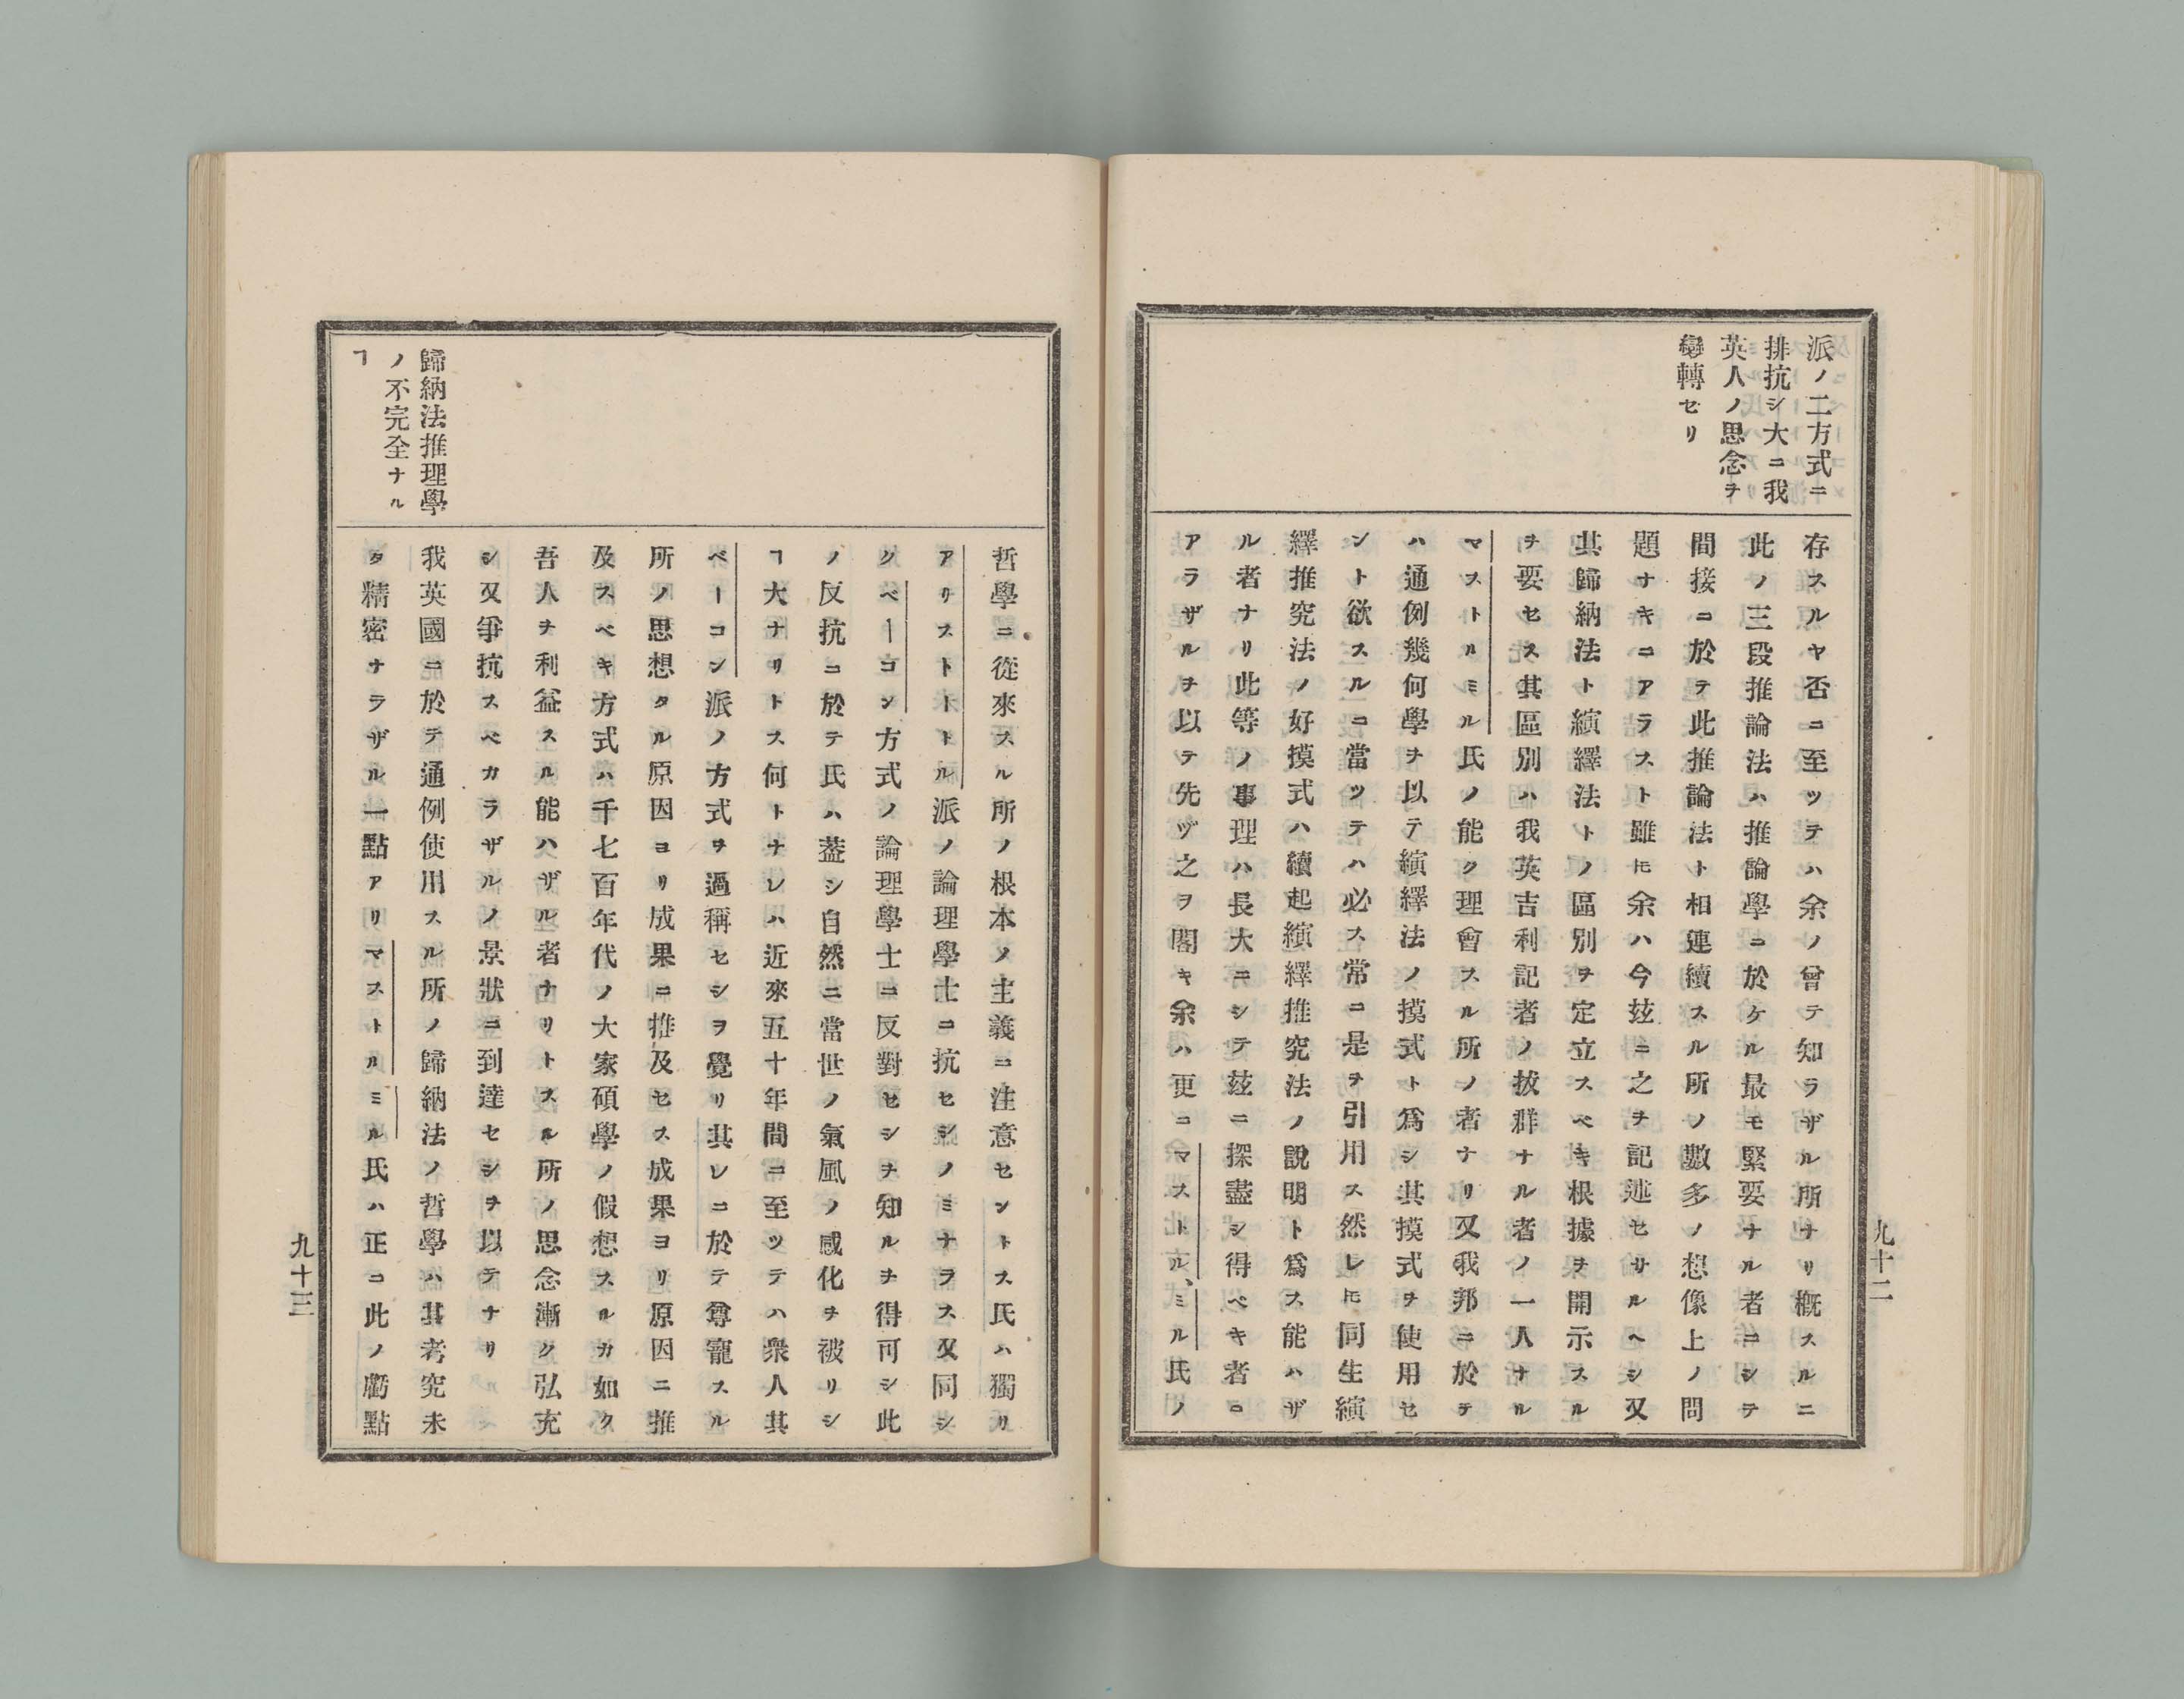 派ノ二方式ニ
排抗シ大ニ我
英人ノ思念ヲ
變轉セリ
存スルヤ否ニ至ツテハ余ノ曾テ知ラザル所ナリ概スルニ
此ノ三段推論法ハ推論學ニ於ケル最モ緊要ナル者ニシテ
間接ニ於テ此推論法ト相連續スル所ノ數多ノ想像上ノ問
題ナキニアラスト雖𪜈余ハ今玆ニ之ヲ記述セサルヘシ又
其歸納法ト繽繹法トノ區別ヲ定立スベキ根據ヲ開示スル
ヲ要セス其區別ハ我英吉利記者ノ拔群ナル者ノ一人ナル
マストルミル氏ノ能ク理會スル所ノ者ナリ又我邦ニ於テ
ハ通例幾何學ヲ以テ繽繹法ノ摸式ト爲シ其摸式ヲ使用セ
ント欲スルニ當ツテハ必ス常ニ是ヲ引用ス然レ𪜈同生繽
繹推究法ノ好摸式ハ續起繽繹推究法ノ說明ト爲ス能ハザ
ル者ナリ此等ノ事理ハ長大ニシテ玆ニ探盡シ得ベキ者ニ
アラザルヲ以テ先ヅ之ヲ閣キ余ハ更ニマストル、ミル氏ノ
九十二
哲學ニ從來スル所ノ根本ノ主義ニ注意セントス氏ハ獨リ
アリストートル派ノ論理學士ニ抗セシノミナラス又同シ
クベーコン方式ノ論理學士ニ反對セシヲ知ルヲ得可シ此
ノ反抗ニ於テ氏ハ蓋シ自然ニ當世ノ氣風ノ感化ヲ被リシ
ヿ大ナリトス何トナレハ近來五十年間ニ至ツテハ衆人其
ベーコン派ノ方式ヲ過稱セシヲ覺リ其レニ於テ尊寵スル
所ノ思想タル原因ヨリ成果ニ推及セス成果ヨリ原因ニ推
及スベキ方式ハ千七百年代ノ大家碩學ノ假想スルカ如ク
吾人ヲ利益スル能ハザル者ナリトスル所ノ思念漸ク弘充
シ又爭抗スベカラザルノ景狀ニ到達セシヲ以テナリ
我英國ニ於テ通例使用スル所ノ歸納法ノ哲學ハ其考究未
タ精密ナラザル一點アリマストルミル氏ハ正ニ此ノ虧點
歸納法推理學
ノ不完全ナル
ヿ
九十三